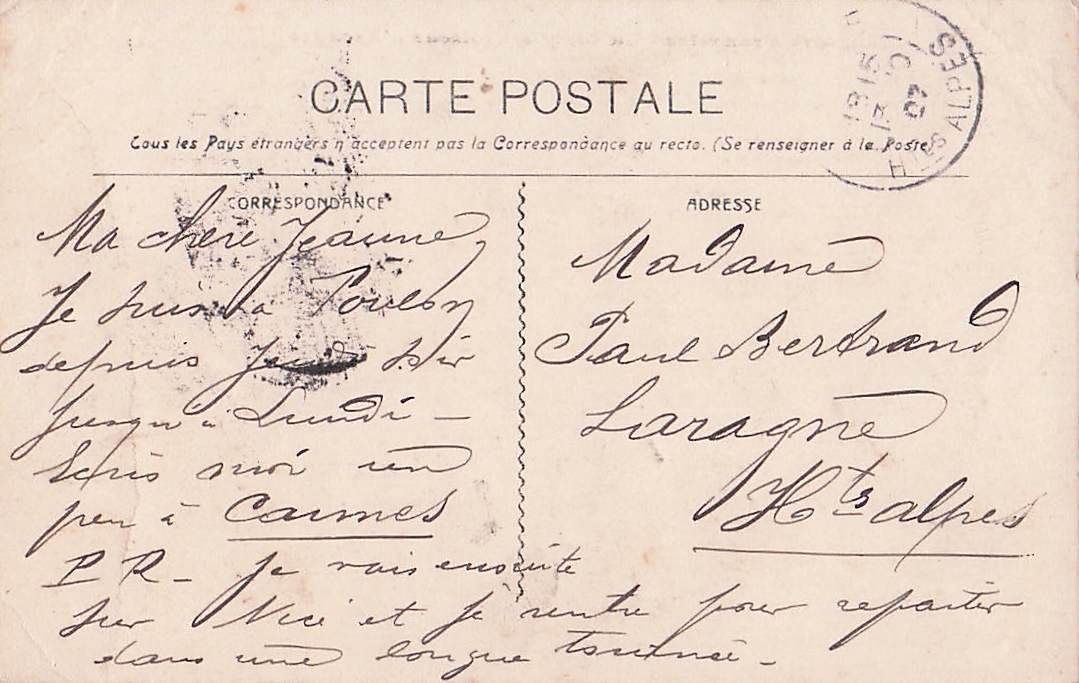 CARTE POSTALE
Tous les Pays étrangers n'acceptent pas la Correspondance au recto. (Se renseigner à la Poste)
CORRESPONDANCE
Ma chère Jeanne,
Je suis à Toulon
depuis Jeudi soir
jusqu'à Lundi -
Ecris moi un
peu à Cannes
P R - Je vais ensuite
sur Nice et je rentre pour repartir
dans une longue tournée -
ADRESSE
Madame
Paul Bertrand
Laragne
Htes alpes
07
HTES ALPES